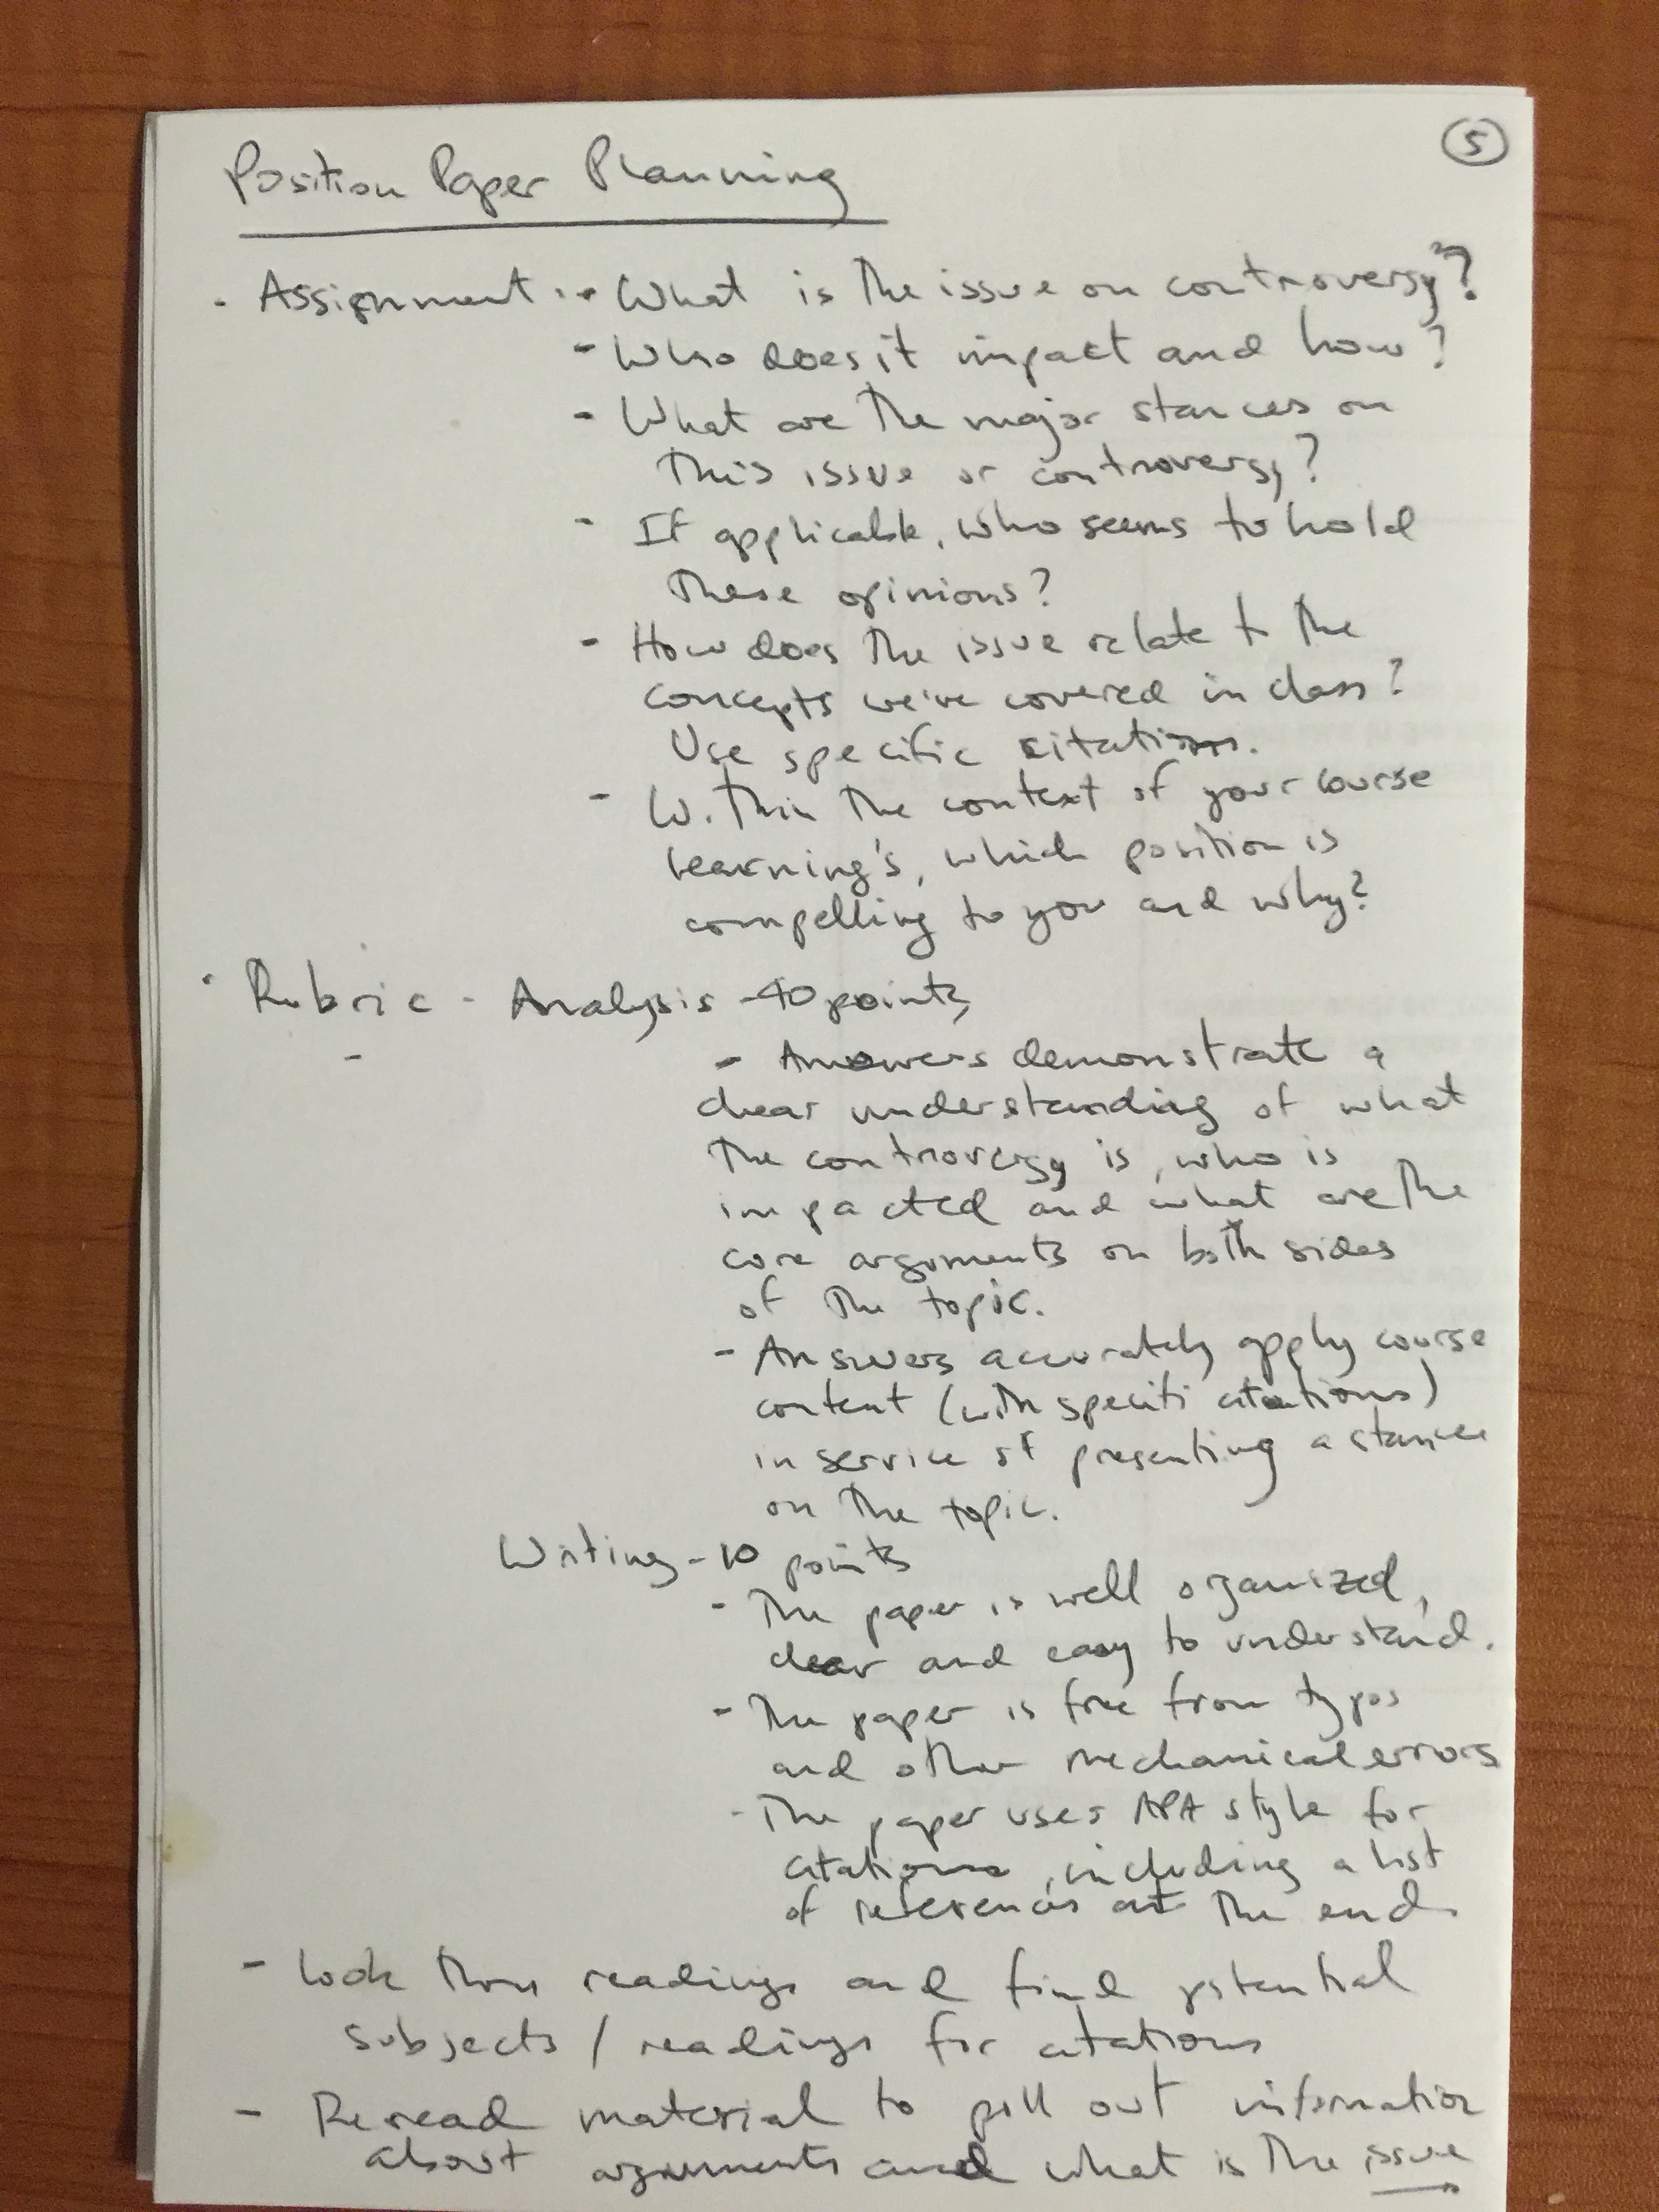 5
Position Paper Planning
- Assignment :- What is the issue on controversy?
- Who does it impact and how?
- What are the major stances on
this issue or controversy?
- If applicable, who seems to hold
these opinions?
- How does the issue relate to the
concepts we've covered in class?
Use specific citations.
- Within the context of your course
learning's, which position is
compelling to you and why?
- Rubric - Analysis - 40 points
-
- Answers demonstrate a
clear understanding of what
the controversy is, who is
impacted and what are the
core arguments on both sides
of the topic.
- Answers accurately apply course
content (with specifi citations)
in service of presenting a stance
on the topic.
Writing - 10 points
- The paper is well organized,
clear and easy to understand.
- The paper is free from typos
and other mechanical errors
- The paper uses APA style for
citations, including a list
of references at the end.
- Look thru readings and find potential
subjects / readings for citations
- Reread material to pull out information
about arguments and what is the issue